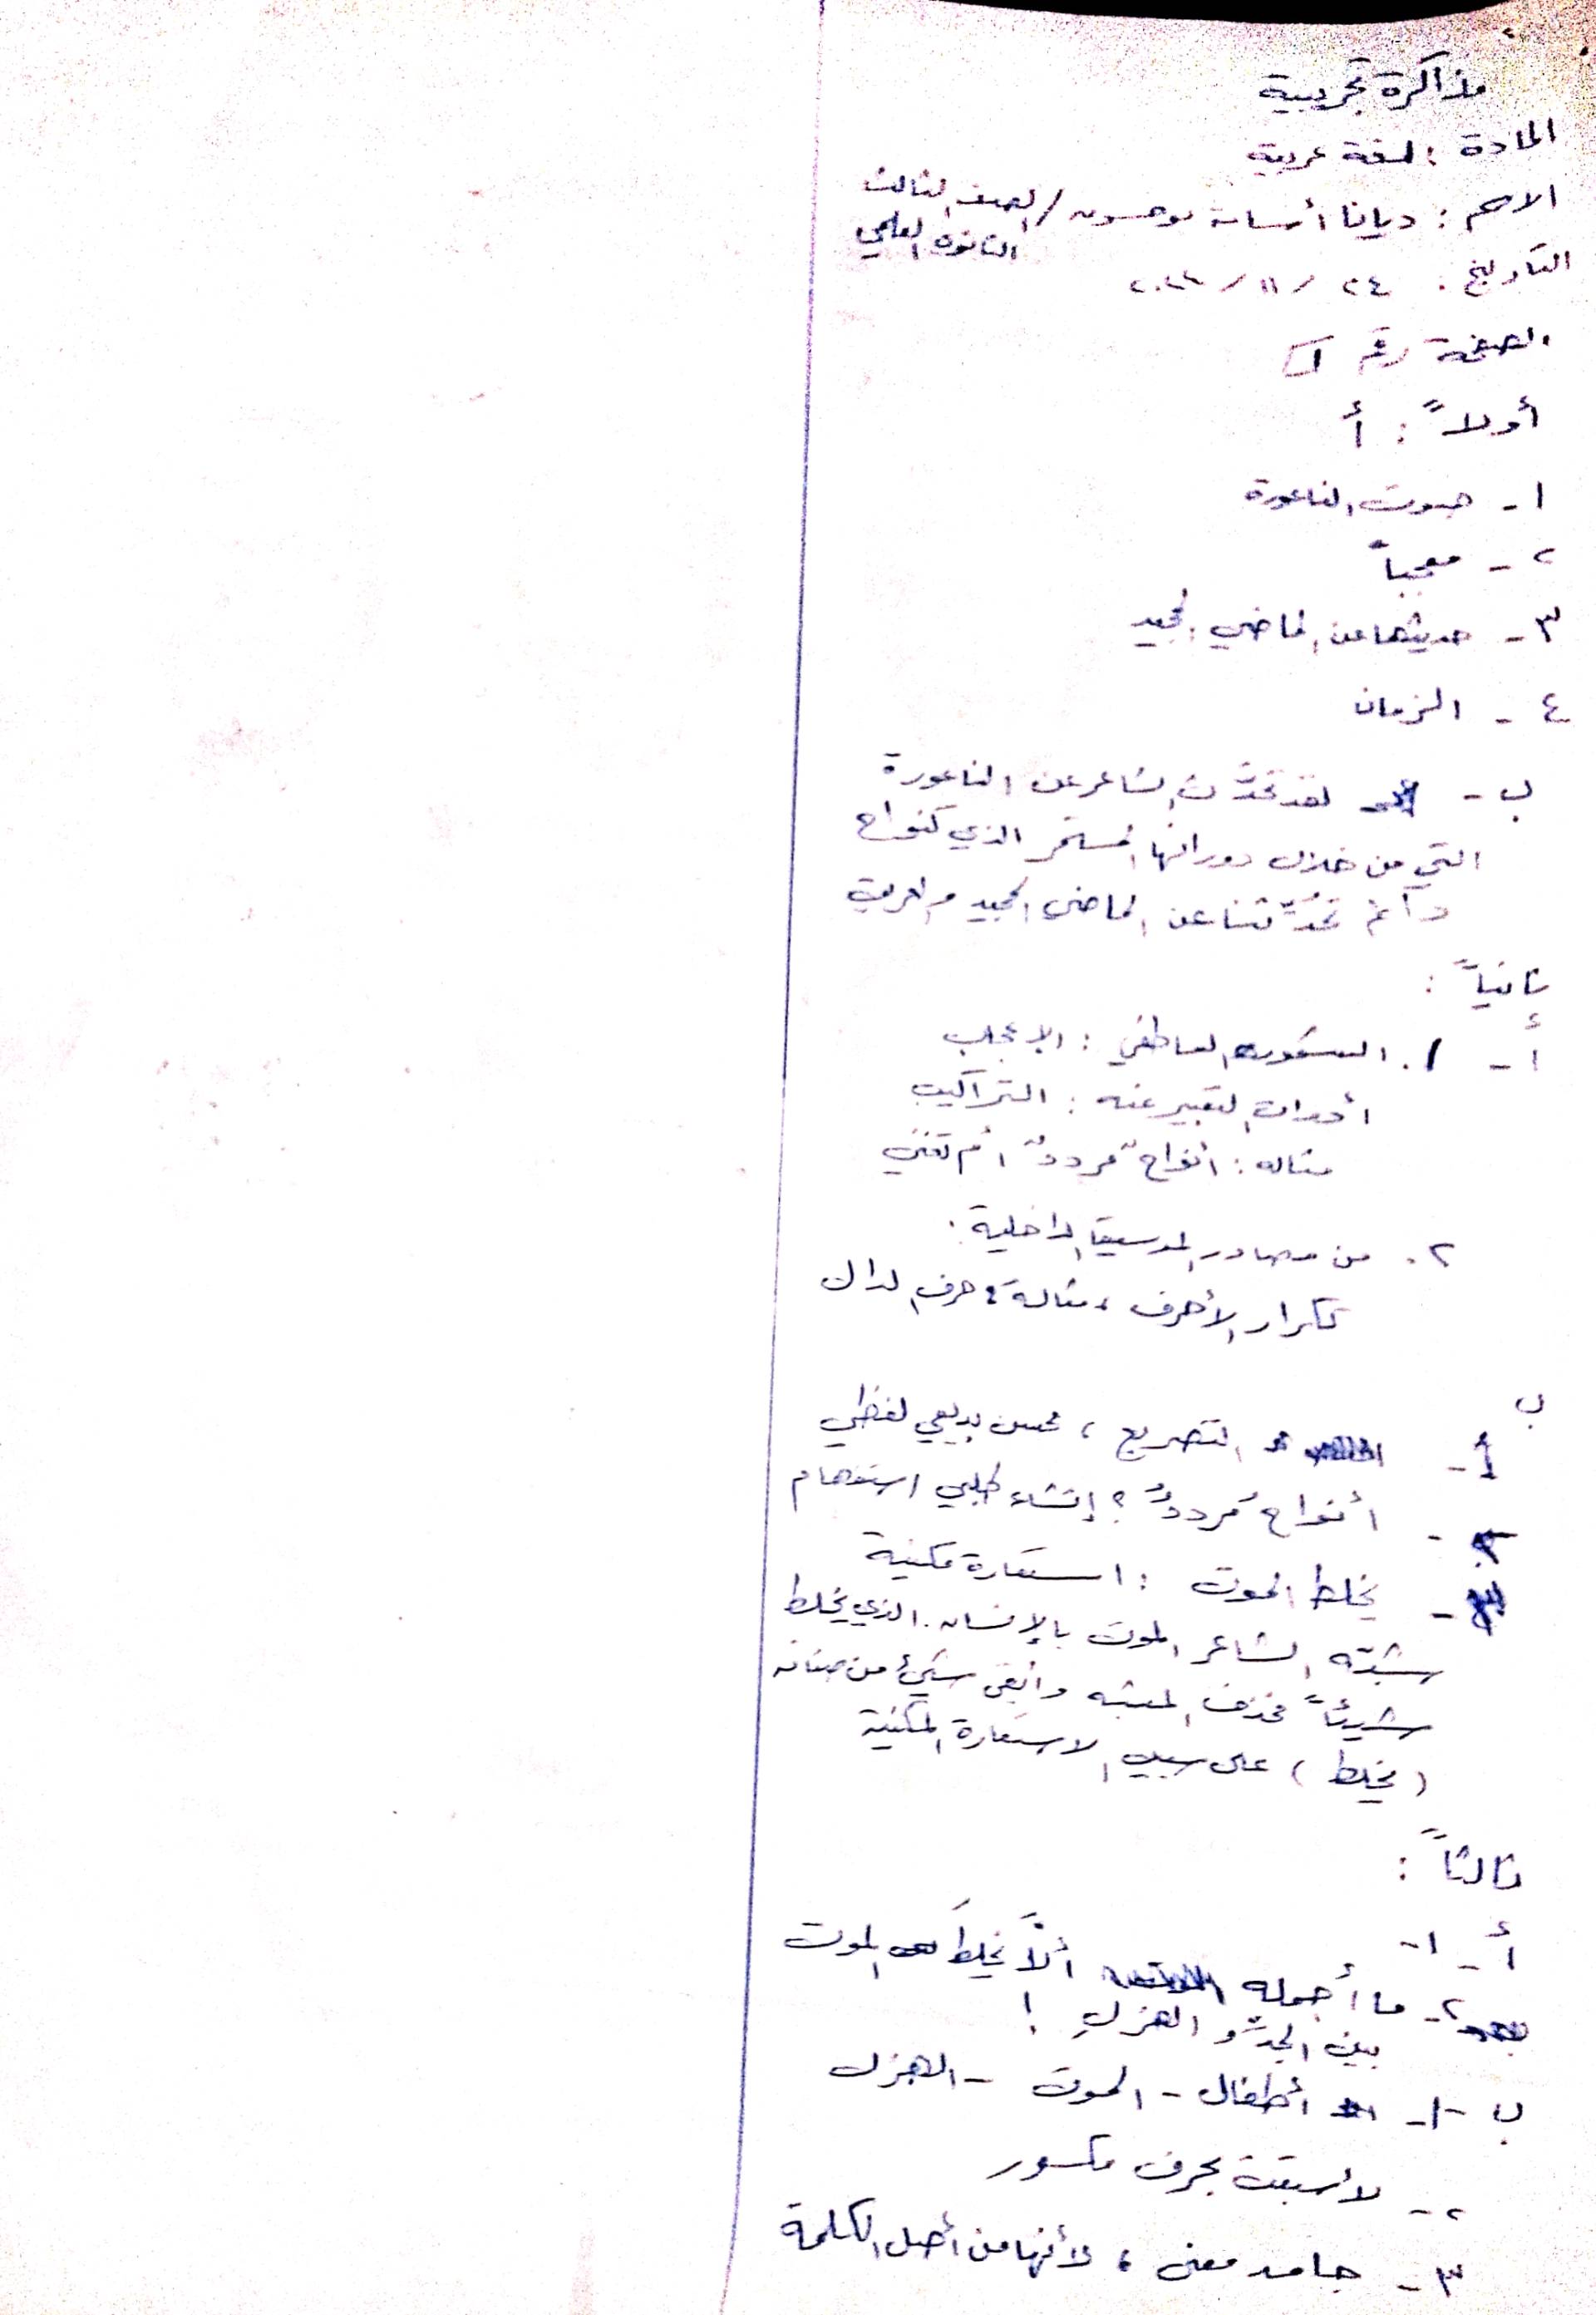 مذاكرة تجريبية
المادة : لغة عربية
الاسم : ديانا أرسان / الصف الثالث
الثانوي العلمي
التاريخ : ٢٤ / ١١ /
الصفحة رقم ١
أولاً : أ
١ - صوت الناعورة
٢ - معجباً
٣ - حديثها عن الماضي المجيد
٤ - الزمان
ب - لقد تحدَّث الشاعر عن الناعورة
التي من خلال دورانها المستمر الذي كنواح
دائم تحدِّثنا عن الماضي المجيد و العريق
ثانياً :
أ - ١. الشعور العاطفي : الإعجاب
أدوات التعبير عنه : التراكيب
مثاله : أنواح مردد أم تغني
٢. من مصادر الموسيقا الداخلية :
تكرار الأحرف ، مثاله : حرف الدال
ب
أ - التصريع ، محسن بديعي لفظي
- أنواح مرددٌ ؟ إنشاء طلبي استفهام
- يخلط الموت : استعارة مكنية
شبّه الشاعر الموت بالإنسان الذي يخلط
شيئاً فحذف المشبه وأبقى شيئ من صفاته
( يخلط ) على سبيل الاستعارة المكنية
ثالثاً :
أ - ١ -
٢ - ما أجمله ألّا يخلطَ الموت
بين الجدِّ و الهزلِ !
ب - ١ - أطفال - الموت - الهزل
٢ - لأسبقت بحرف مكسور
٣ - جامد معنى ، لأنها من أصل الكلمة